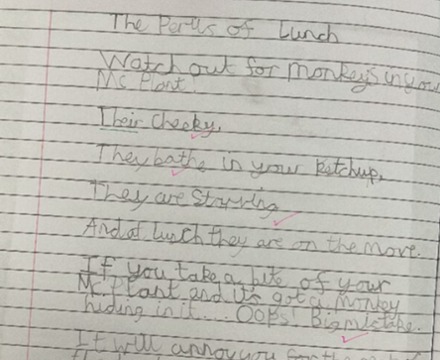 The Perils of Lunch
Watch out for monkeys in you
Mc Plant!
Their cheeky,
They bathe in your ketchup,
They are starving
And at lunch they are on the move.
If you take a bite of your
Mc Plant and its got a monkey
hiding in it.... OOPS! Big mistake.
It will annoy you for the